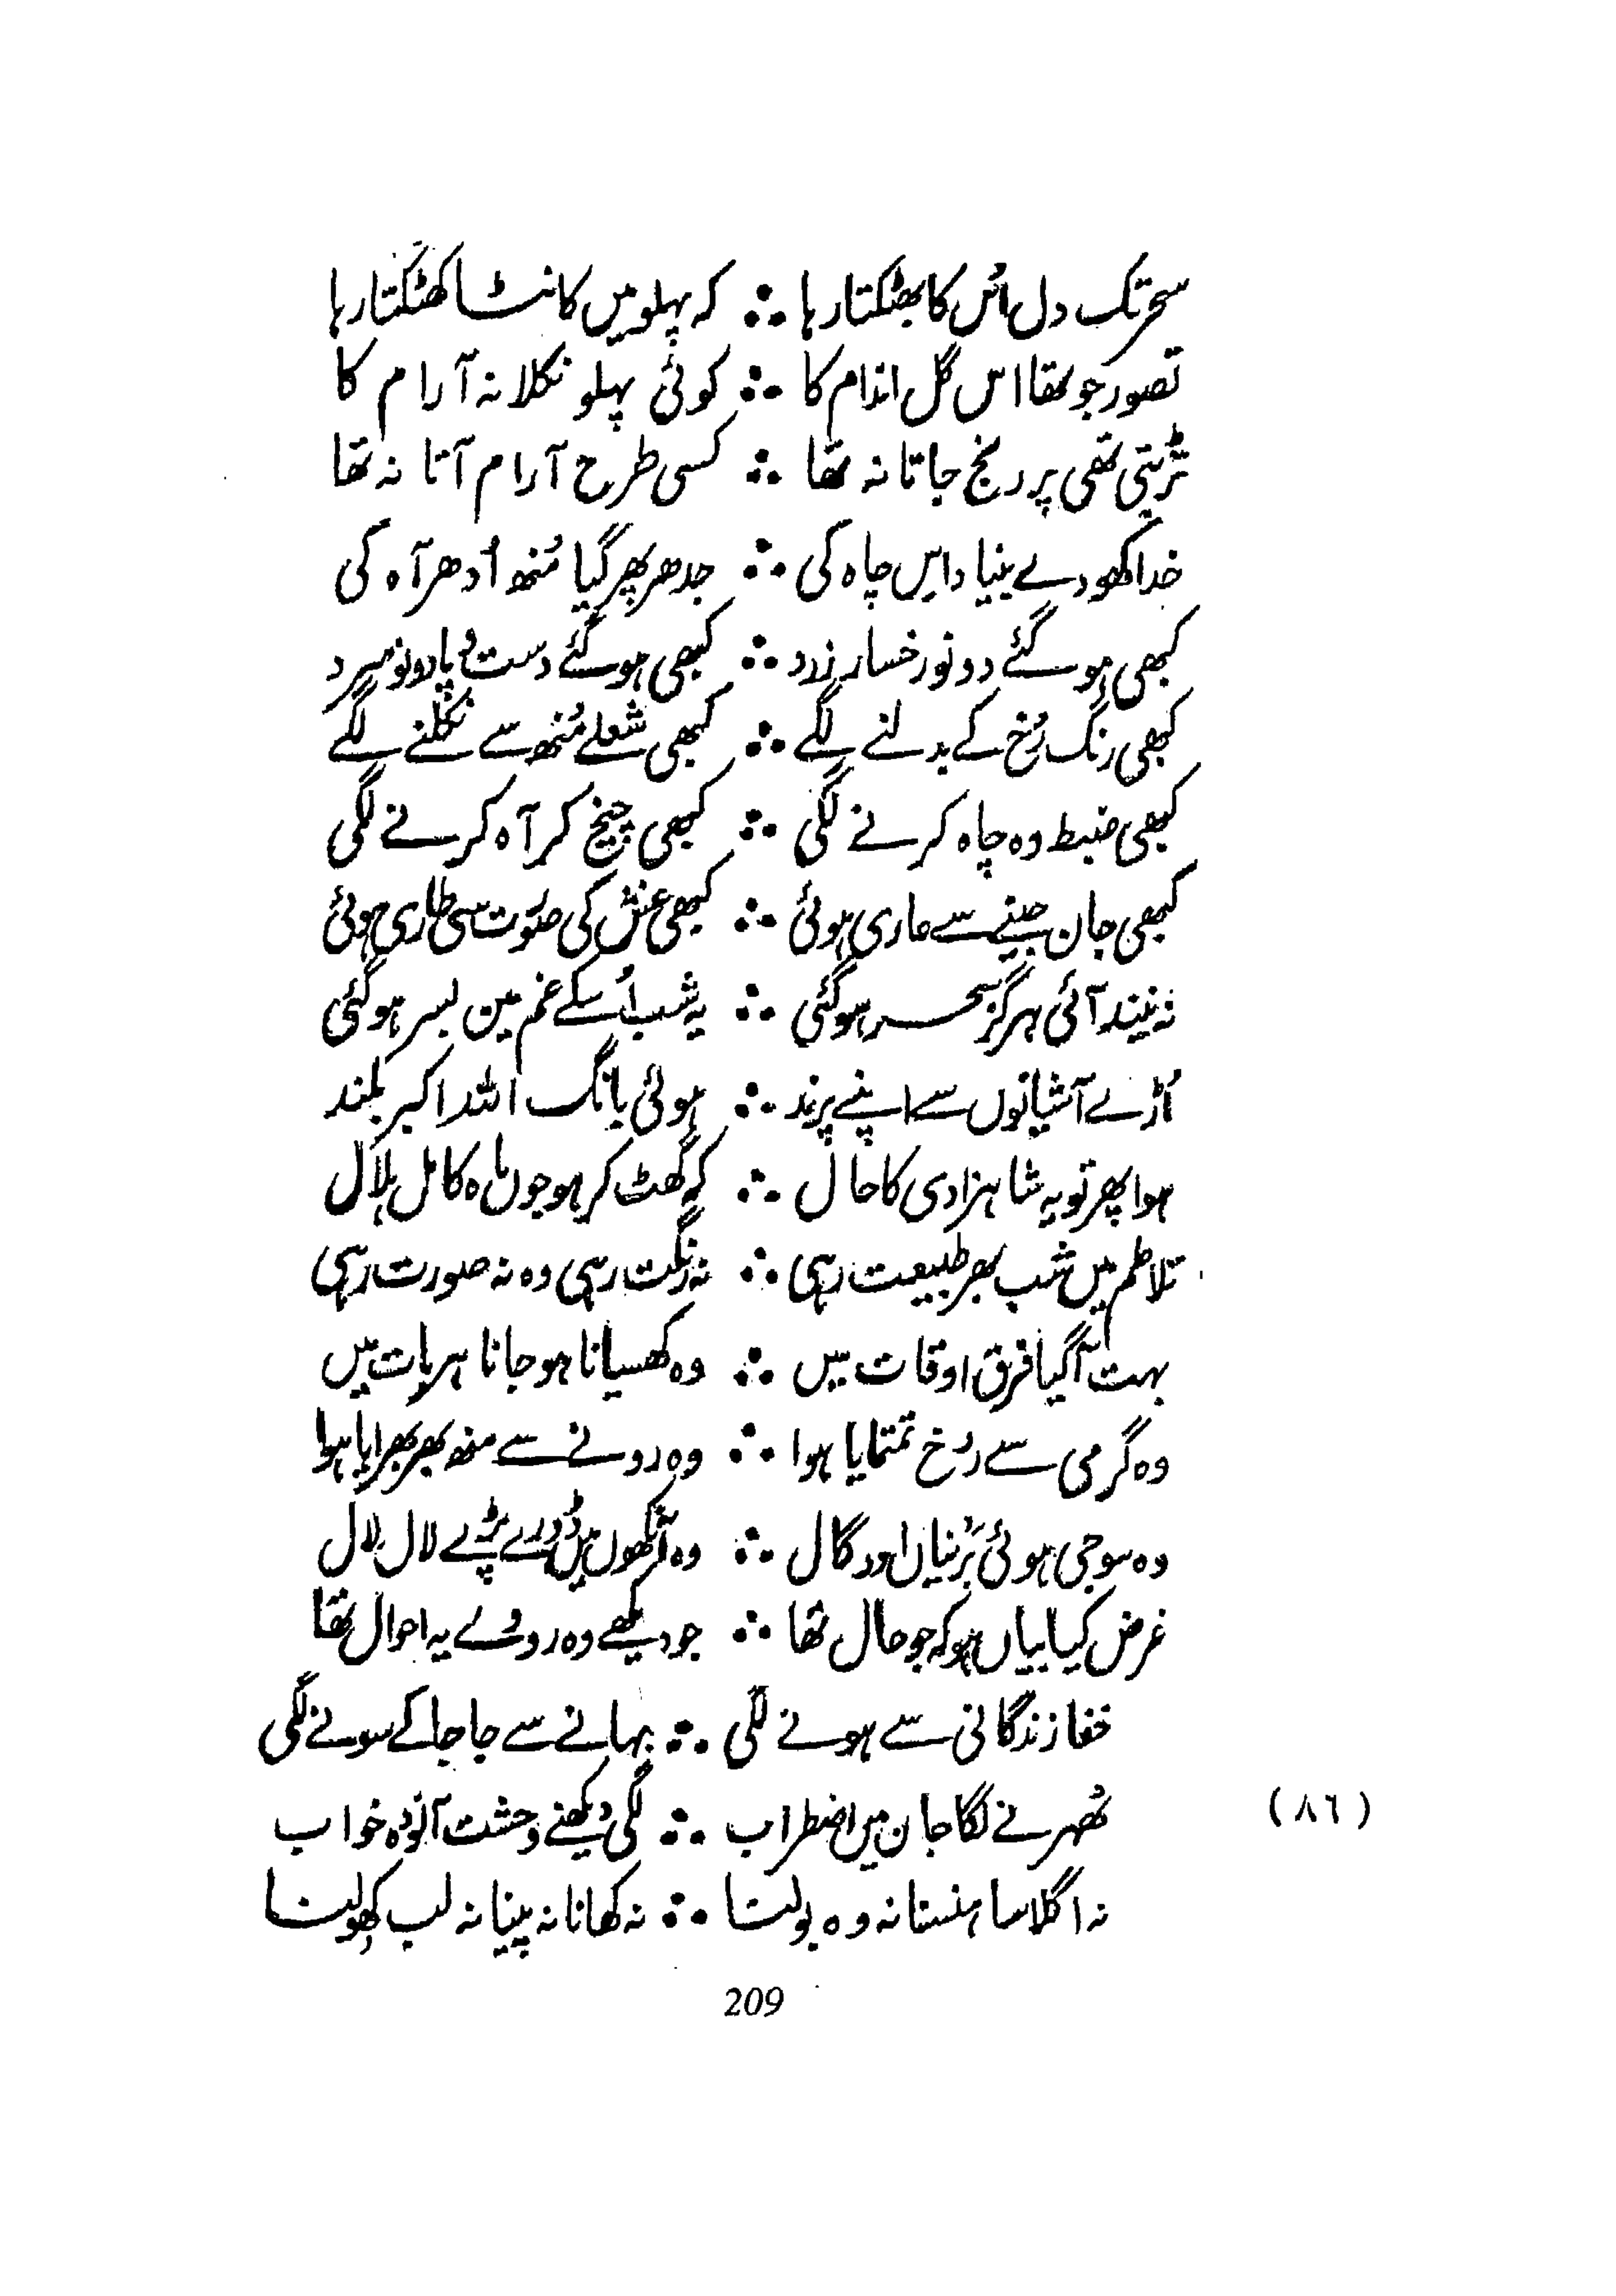 سحر تک دل اُس کا بھٹکتا رہا ؞ کہ پہلو میں کانٹا کھٹکتا رہا
تصور جو تھا اس گل اندام کا ؞ کوئی پہلو نکلا نہ آرام کا
تڑپتی تھی پر رنج جاتا نہ تھا ؞ کسی طرح آرام آتا نہ تھا
خدا کھودے بنیاد اس چاہ کی ؞ جدھر پھر گیا مُنھ اُدھر آہ کی
کبھی ہو گئے دونو رخسار زرد ؞ کبھی ہو گئے دست و پا دونو سرد
کبھی رنگ رُخ کے بدلنے لگے ؞ کبھی شعلے مُنھ سے نکلنے لگے
کبھی ضبط وہ چاہ کرنے لگی ؞ کبھی چیخ کر آہ کرنے لگی
کبھی جان جینے سے عاری ہوئی ؞ کبھی غش کی صورت سی طاری ہوئی
نہ نیند آئی ہرگز سحر ہو گئی ؞ یہ شب اُسکے غم مین بسر ہو گئی
اُڑے آشیانوں سے اپنے پرند ؞ ہوئی بانگ اللہ اکبر بلند
ہوا پھر تو یہ شاہزادی کا حال ؞ کہ گھٹ کر ہو جوں ماہ کامل ہلال
تلاطم میں شب بھر طبیعت رہی ؞ نہ رنگت رہی وہ نہ صورت رہی
بہت آگیا فرق اوقات میں ؞ وہ کھسیانا ہو جانا ہر بات میں
وہ گرمی سے رخ تمتمایا ہوا ؞ وہ رونے سے منھ بھر بھرایا ہوا
وہ سوجی ہوئی بَرُنیاں اور گال ؞ وہ آنکھوں میں ڈورے پڑے لال لال
غرض کیا بیاں ہو کہ جو حال تھا ؞ جو دیکھے وہ رووے یہ احوال تھا
خفا زندگانی سے ہونے لگی ؞ بہانے سے جا جا کے سونے لگی
(٨٦) ٹھہرنے لگا جان میں اضطراب ؞ لگی دیکھنے وحشت آلودہ خواب
نہ اگلا سا ہنسنا نہ وہ بولنا ؞ نہ کھانا نہ پینا نہ لب کھولنا
209